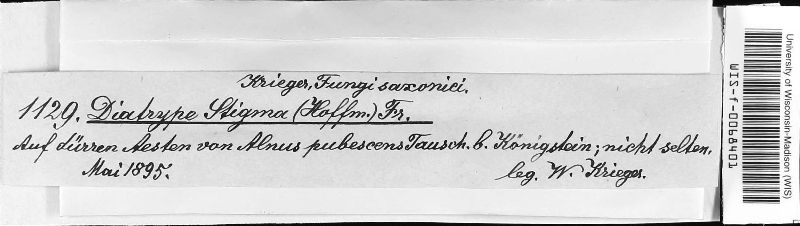 Krieger, Fungi saxonici.
1129. Diatrype Stigma (Hoffm.) Fr.
Auf dürren Aesten von Alnus pubescens Tausch. b. Königstein; nicht selten.
Mai 1895.
leg. W. Krieger.
University of Wisconsin-Madison (WIS)
WIS-f-0068401